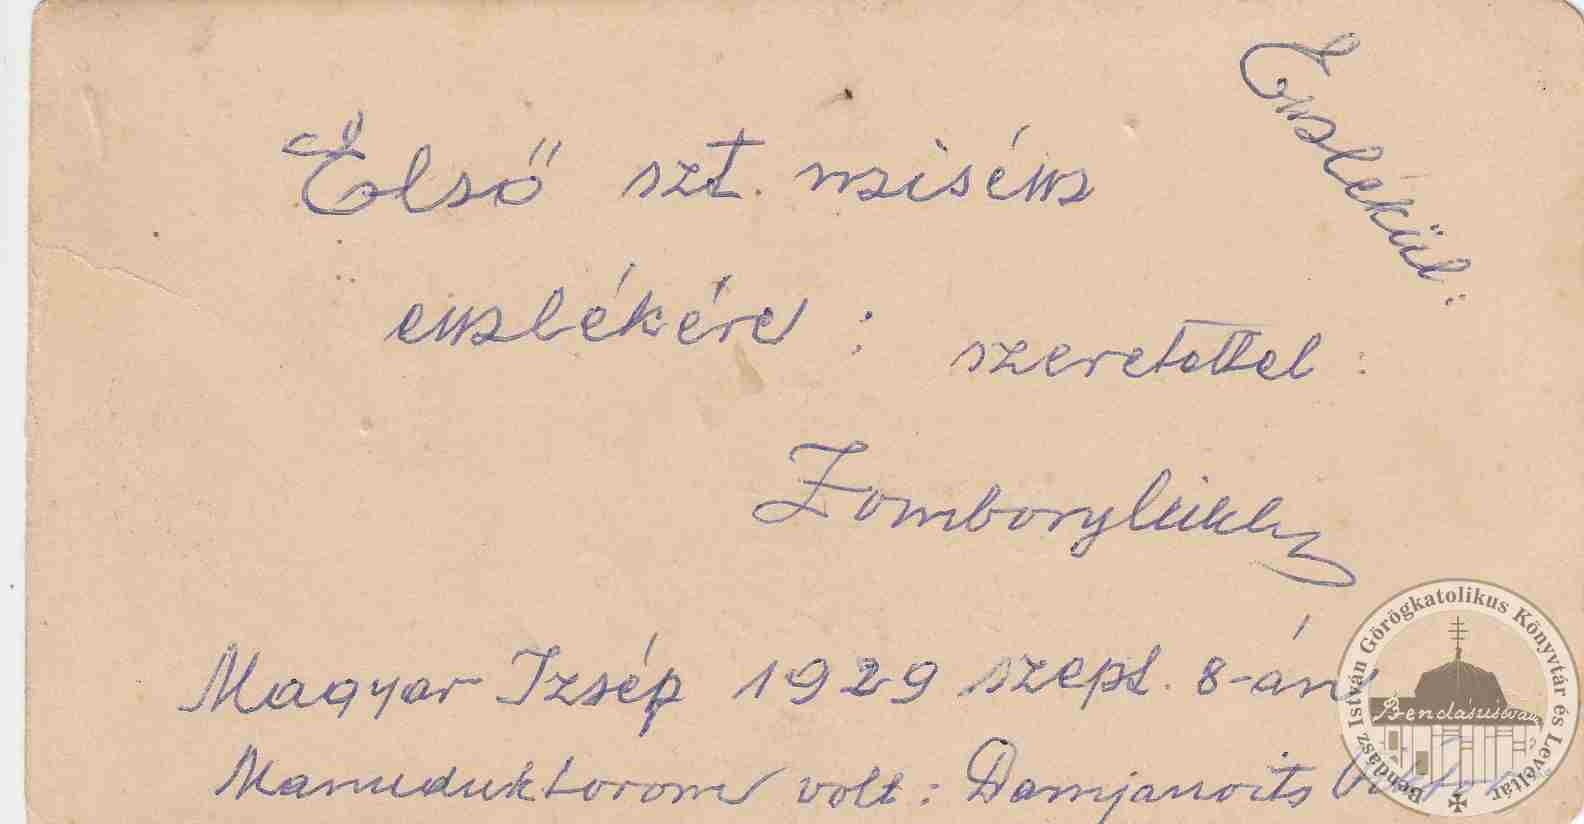 Emlékül:
Első szt. misém
emlékére : szeretettel :
Zombory
Magyar Izsép 1929 szept. 8-án
Manuduktorom volt : Damjanovits
Bendász István Görögkatolikus Könyvtár és Levéltár